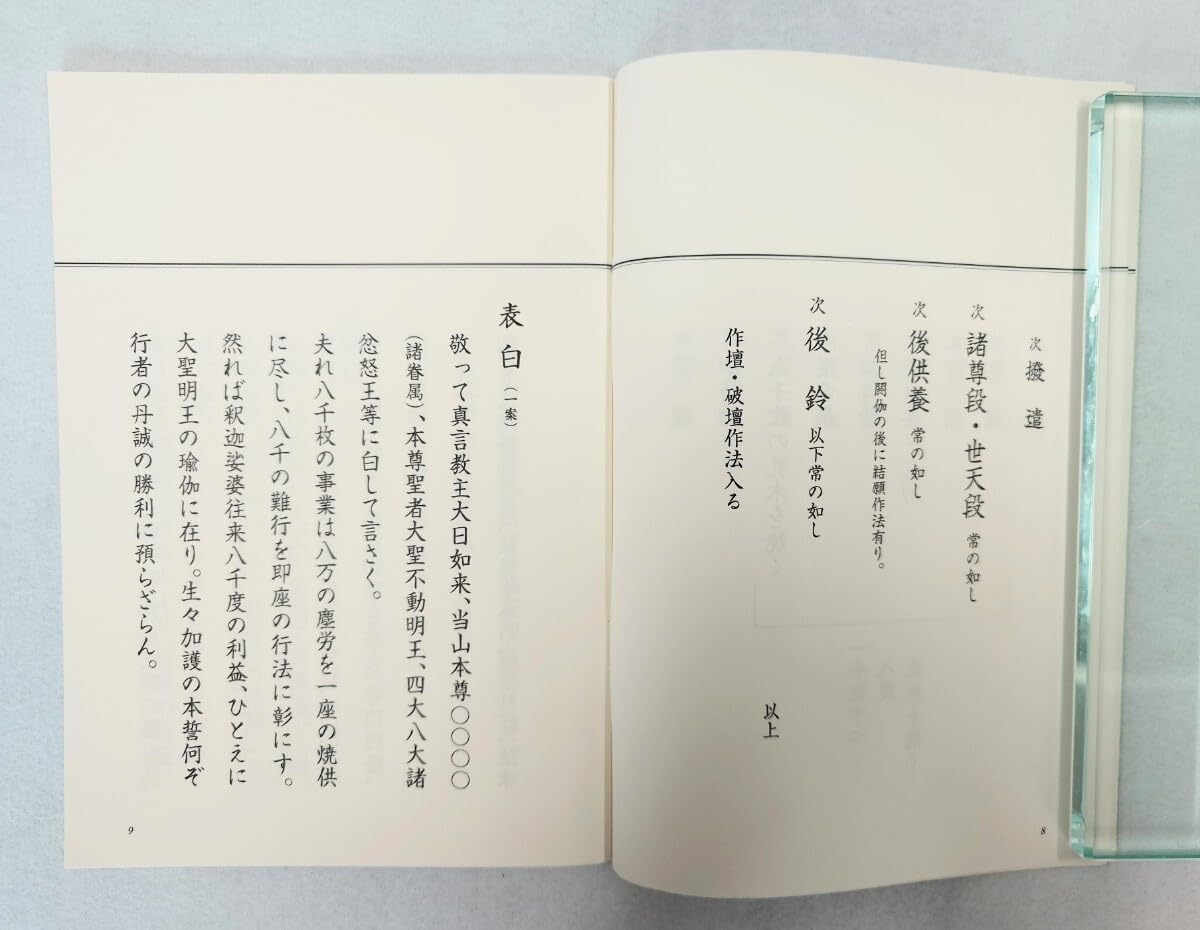 次 撥遣
次 諸尊段・世天段 常の如し
次 後供養 常の如し
但し閼伽の後に結願作法有り。
次 後鈴 以下常の如し
以上
作壇・破壇作法入る
8
表白(一案)
敬って真言教主大日如来、当山本尊〇〇〇〇
(諸眷属)、本尊聖者大聖不動明王、四大八大諸
忿怒王等に白して言さく。
夫れ八千枚の事業は八万の塵労を一座の焼供
に尽し、八千の難行を即座の行法に彰にす。
然れば釈迦娑婆往来八千度の利益、ひとえに
大聖明王の瑜伽に在り。生々加護の本誓何ぞ
行者の丹誠の勝利に預らざらん。
9